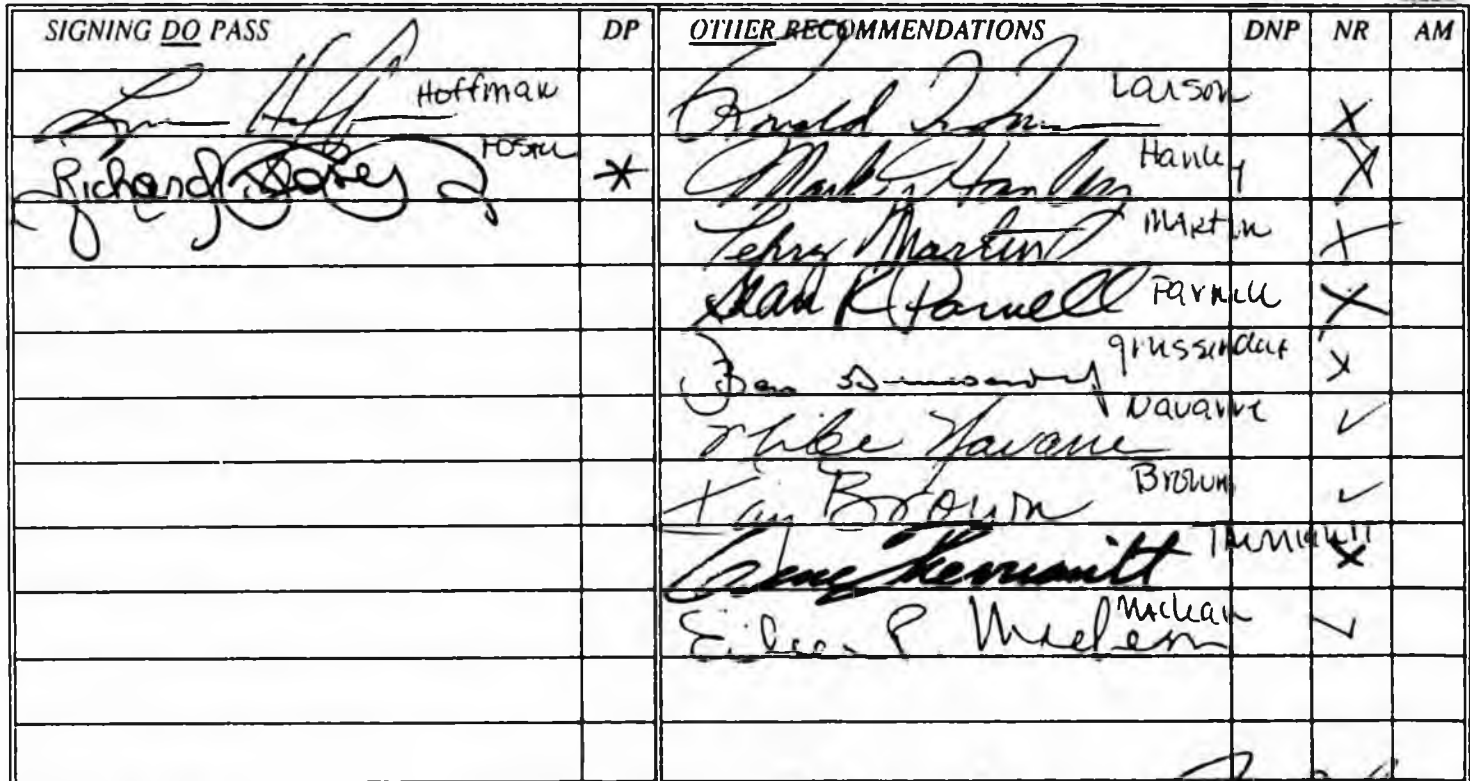 SIGNING DO PASS DP OTHER RECOMMENDATIONS DNP NR AM
Hoffman
Ronald Larson
Larson X
Richard Foster X
Mark Hanley
Hanley X
Terry Martin
Martin X
Sean R Parnell
Parnell X
Ben Grussendorf
Grussendorf X
Mike Navarre
Navarre ✓
Kay Brown
Brown ✓
Gene Therriault
Therriault X
Eileen P. MacLean
MacLean ✓